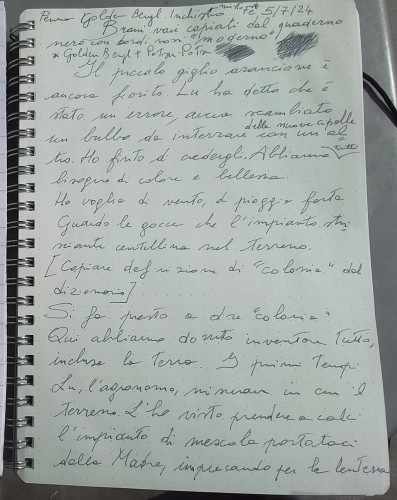 Penna Golden Beryl. Inchiostro misto* Fe 5/7/24
Brani vari copiati dal quaderno
nero con bordi rossi "moderno"
* Golden Beryl + Potzu-Potzu
Il piccolo giglio arancione è
ancora fiorito. Lu ha detto che è
stato un errore, aveva scambiato
un bulbo da interrare con un'al-
delle nuove cipolle
tro. Ho finto di credergli. Abbiamo tutti
bisogno di colore e bellezza.
Ho voglia di vento, di pioggia forte.
Guardo le gocce che l'impianto stri-
sciante centellina nel terreno.
[Copiare definizione di "colonia" dal
dizionario]
Si fa presto a dire "colonia".
Qui abbiamo dovuto inventare tutto,
inclusa la terra. I primi tempi
Lu, l'agronomo, misurava in cm il
terreno. L'ho visto prendere a calci
l'impianto di mescola portataci
dalla Madre, imprecando per la lentezza